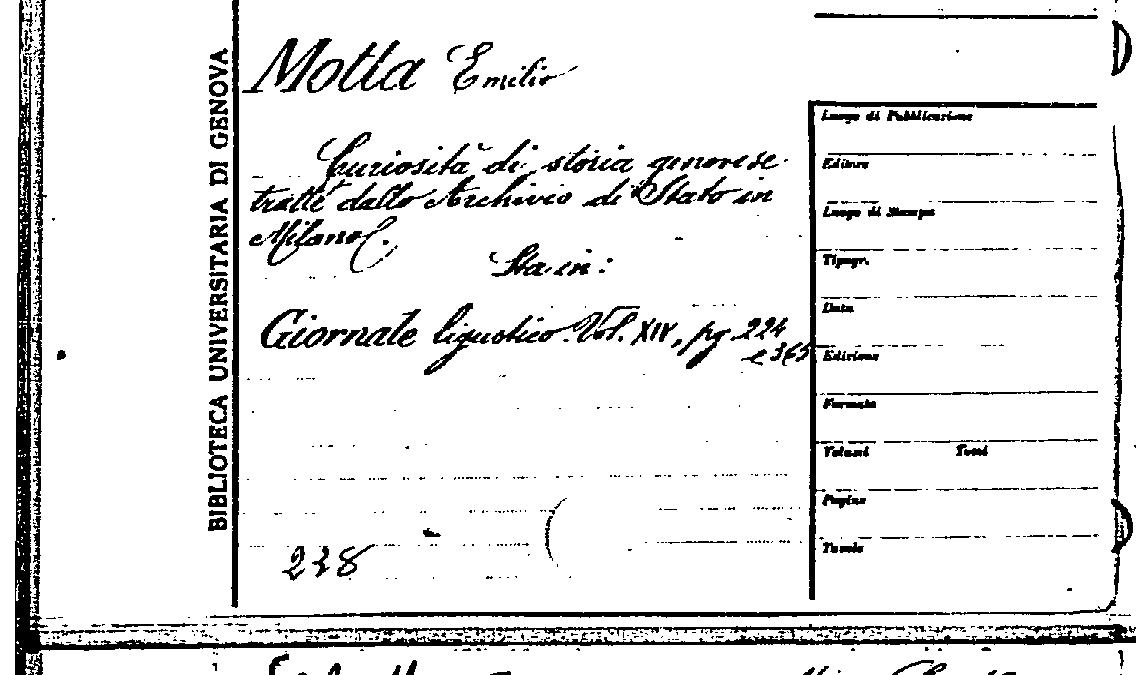 BIBLIOTECA UNIVERSITARIA DI GENOVA
Motta Emilio
Curiosità di storia genovese
tratte dallo Archivio di Stato in
Milano.
Sta in:
Giornale ligustico. Vol. XIV, pg. 224
e 365
238
Luogo di Pubblicazione
Editore
Luogo di Stampa
Tipogr.
Data
Edizione
Formato
Volumi Tomi
Pagine
Tavole